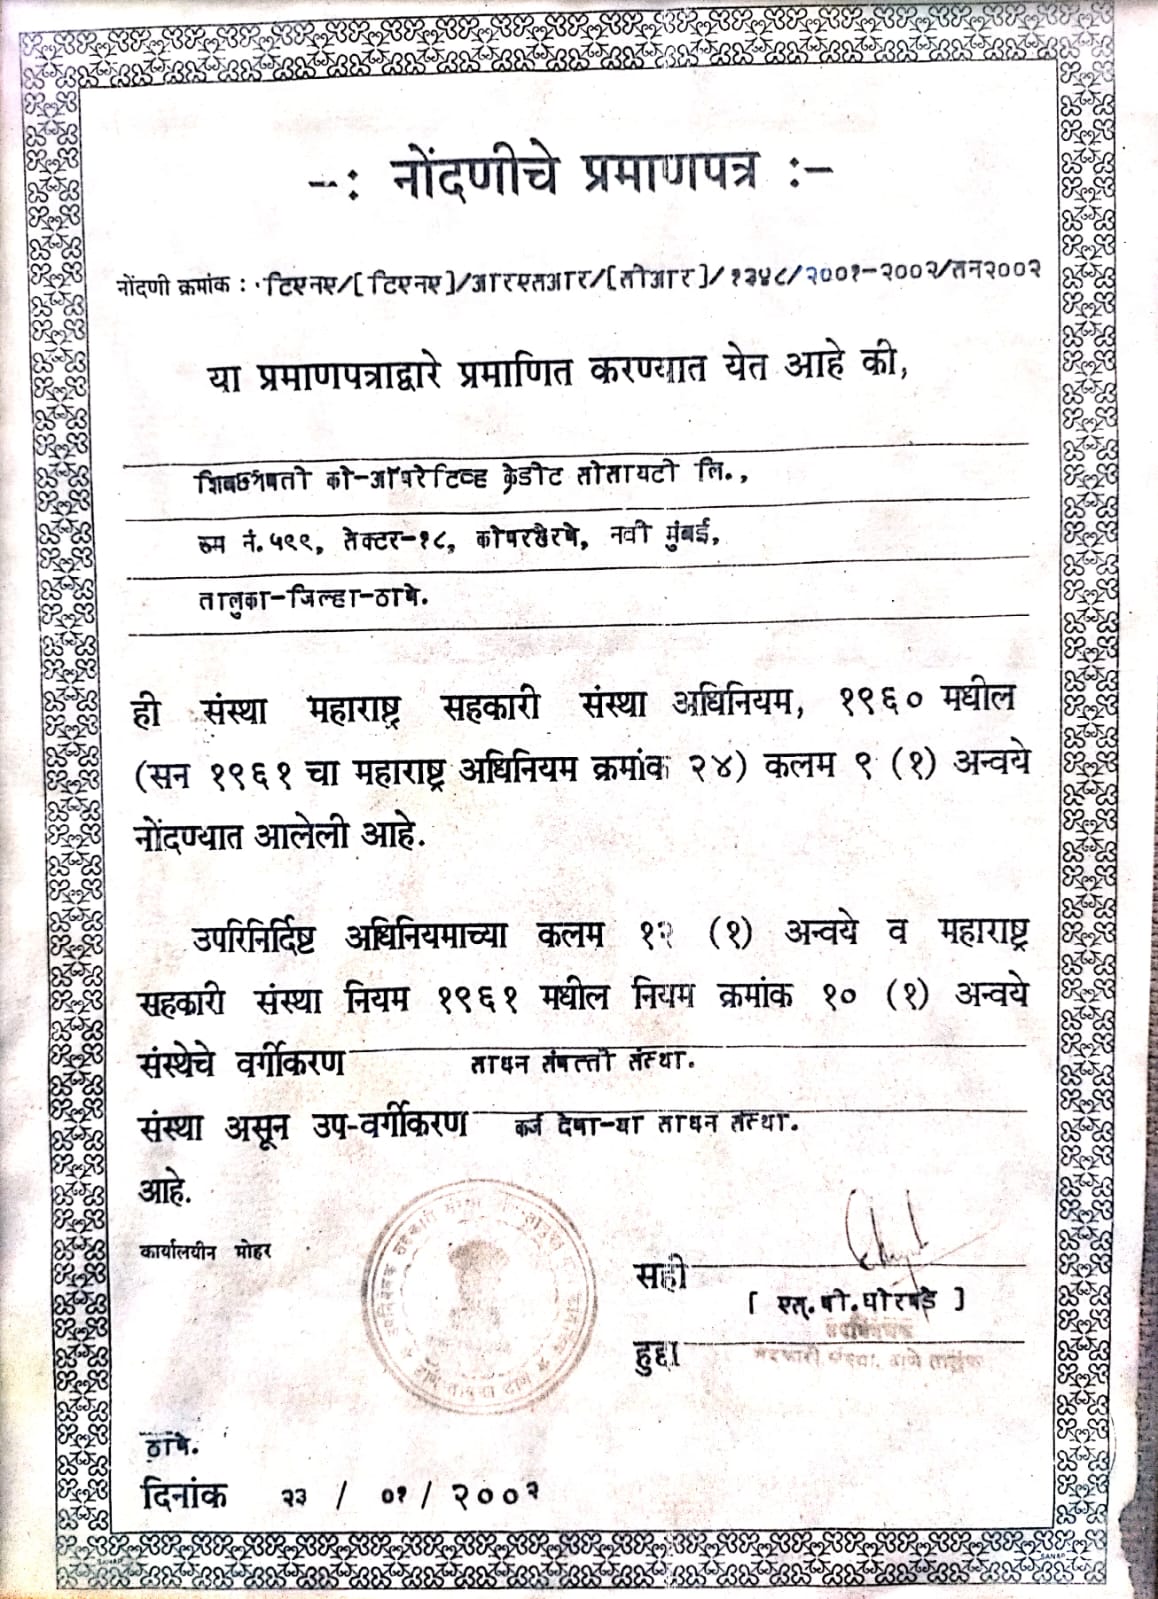 --: नोंदणीचे प्रमाणपत्र :--
नोंदणी क्रमांक : टिएनए/[टिएनए]/आरएसआर/[सीआर]/१३४८/२००१-२००२/सन२००२
या प्रमाणपत्राद्वारे प्रमाणित करण्यात येत आहे की,
शिवछत्रपती को-ऑपरेटिव्ह क्रेडीट सोसायटी लि.,
रुम नं.५९९, सेक्टर-१८, कोपरखैरणे, नवी मुंबई,
तालुका-जिल्हा-ठाणे.
ही संस्था महाराष्ट्र सहकारी संस्था अधिनियम, १९६० मधील
(सन १९६१ चा महाराष्ट्र अधिनियम क्रमांक २४) कलम ९ (१) अन्वये
नोंदण्यात आलेली आहे.
उपरिनिर्दिष्ट अधिनियमाच्या कलम १२ (१) अन्वये व महाराष्ट्र
सहकारी संस्था नियम १९६१ मधील नियम क्रमांक १० (१) अन्वये
संस्थेचे वर्गीकरण साधन संपत्ती संस्था.
संस्था असून उप-वर्गीकरण कर्ज देणा-या साधन संस्था.
आहे.
कार्यालयीन मोहर
सही
[ एस्.बी.घोरपडे ]
उपनिबंधक
हुद्दा
सहकारी संस्था, ठाणे तालुका
ठाणे.
दिनांक २३ / ०१ / २००२